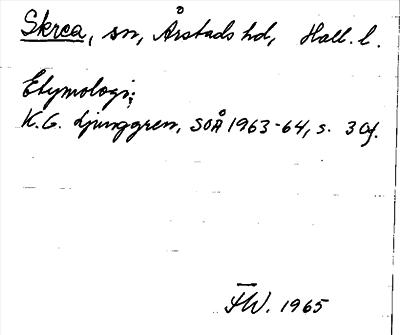 Skrea, sn, Årstads hd, Hall. l.
Etymologi:
K.G. Ljunggren, SOÅ 1963-64, s. 30f.
FW. 1965